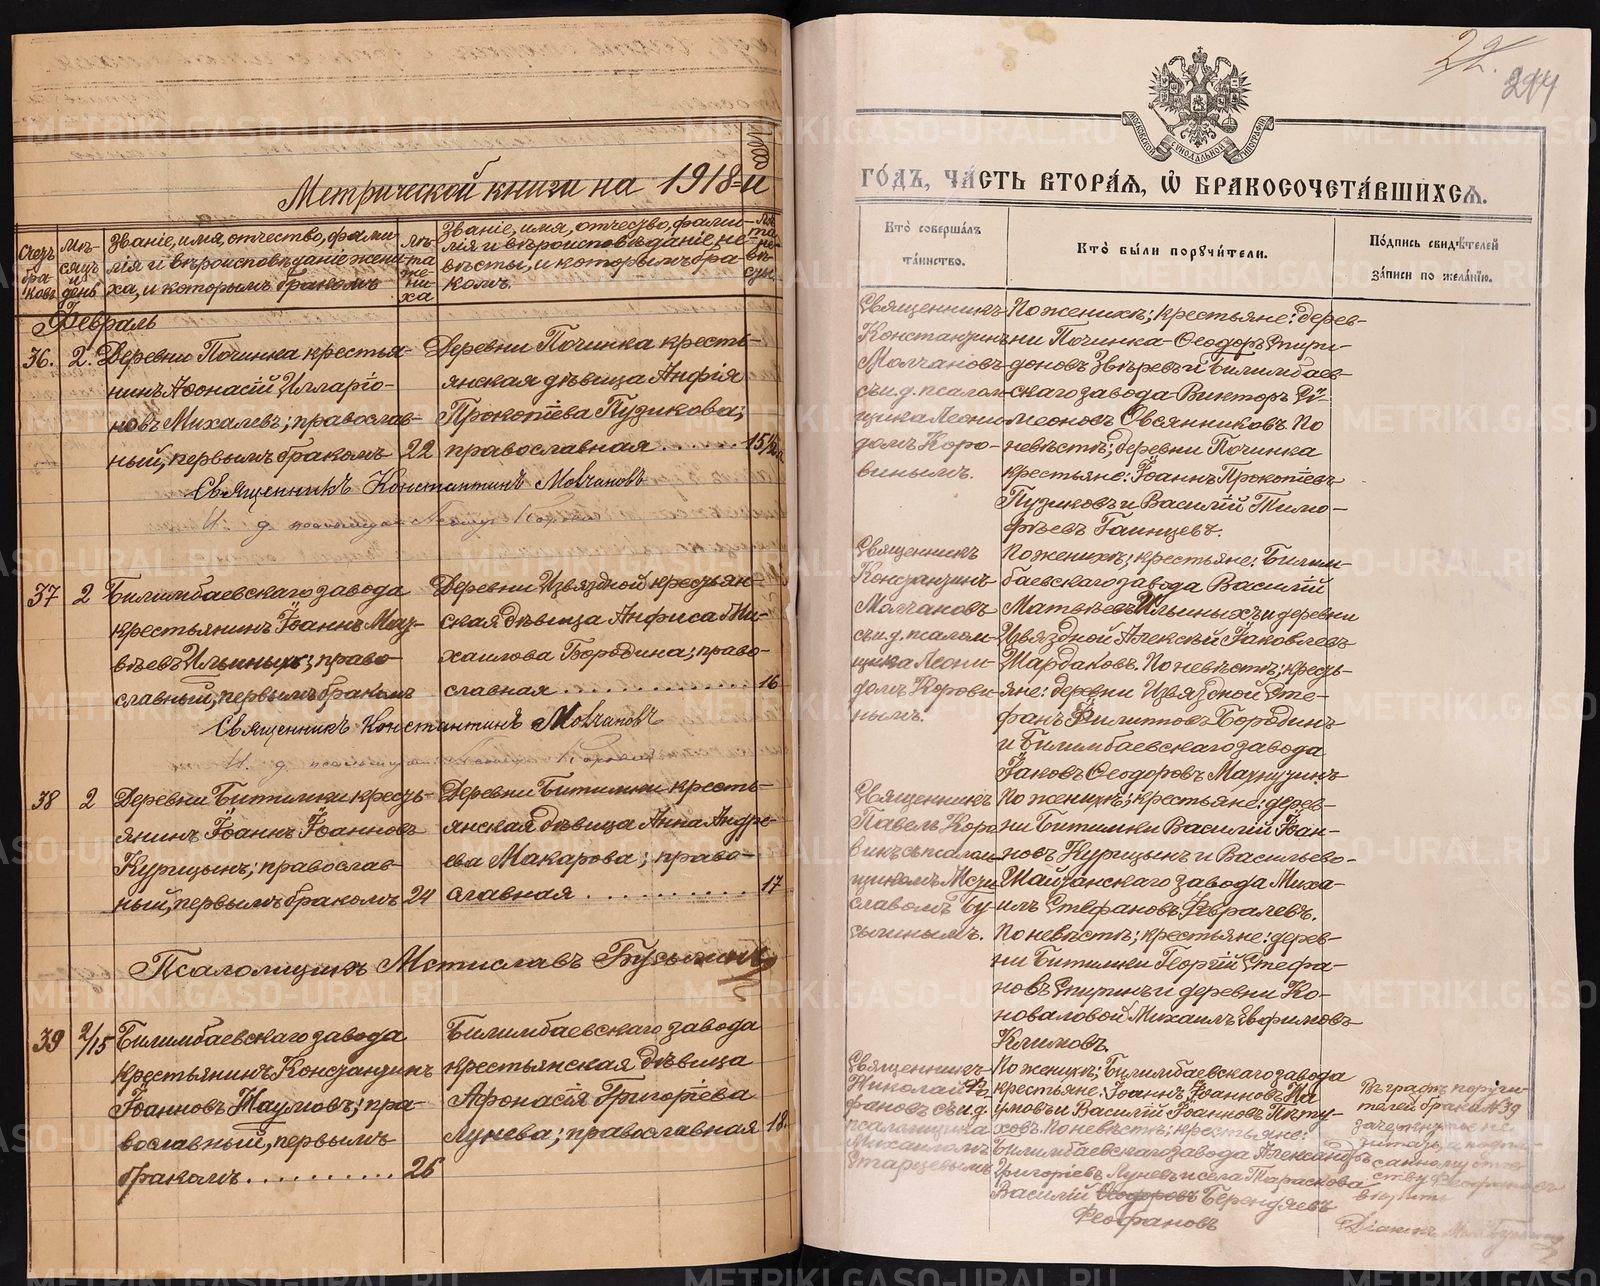 Метрической книги на 1918-й
Счетъ бра-ковъ.
Мѣ-сяцъ и день
Званіе, имя, отчество, фами-
лія и вѣроисповѣданіе жени-
ха, и которымъ бракомъ
Лѣ-та же-ни-ха
Званіе, имя, отчество, фами-
лія и вѣроисповѣданіе не-
вѣсты, и которымъ бра-
комъ.
Лѣ-та не-вѣ-сты.
Февраль
36. 2. Деревни Починка крестья-
нинъ Аѳонасій Илларіо-
новъ Михалевъ; православ-
ный, первымъ бракомъ 22
Деревни Починка кресть-
янская дѣвица Анфія
Прокопіева Пузикова;
православная . . . . . . 15½
Священникъ Константинъ Молчановъ
И. д. псаломщика Леонидъ Коровин
37 2 Билимбаевскаго завода
крестьянинъ Іоаннъ Мат-
вѣевъ Ильиныхъ; право-
славный, первымъ бракомъ
Деревни Извѣздной крестьян-
ская дѣвица Анфиса Ми-
хаилова Бородина; право-
славная . . . . . . . . . . . . . . 16
Священникъ Константинъ Молчановъ
И. д. псаломщика Леонидъ Коровин
38 2 Деревни Битимки кресть-
янинъ Іоаннъ Іоанновъ
Курицынъ; православ-
ный, первымъ бракомъ 24
Деревни Битимки кресть-
янская дѣвица Анна Андре-
ева Макарова; право-
славная . . . . . . . . . . . . . 17
Псаломщикъ Мстиславъ Бусыгинъ
39 2/15 Билимбаевскаго завода
крестьянинъ Константинъ
Іоанновъ Наумовъ; пра-
вославный, первымъ
бракомъ . . . . . . . . . . 26
Билимбаевскаго завода
крестьянская дѣвица
Афонасія Григоріева
Лунева; православная 18.
22.
214
МОСКОВСКОЙ СѴНОДАЛЬНОЙ ТИПОГРАФІИ
ГО́ДЪ, ЧА́СТЬ ВТОРА́Я, Ѡ҆ БРАКОСОЧЕТА́ВШИХСѦ.
Кто̀ соверша́лъ
та́инство.
Кто̀ бы́ли порꙋчи́тели.
По́дпись свидѣ́телей
за́писи по жела́нїю.
Священникъ
Константинъ
Молчановъ
съ и. д. псалом-
щика Леони-
домъ Коро-
винымъ.
По женихѣ; крестьяне: дерев-
ни Починка - Ѳеодоръ Спири-
доновъ Звѣревъ и Билимбаев-
скаго завода - Викторъ Си-
меоновъ Овсянниковъ. По
невѣстѣ; деревни Починка
крестьяне: Іоаннъ Прокопіевъ
Пузиковъ и Василій Тимо-
фѣевъ Гаинцевъ.
Священникъ
Константинъ
Молчановъ
съ и. д. псалом-
щика Леони-
домъ Корови-
нымъ.
По женихѣ; крестьяне: Билим-
баевскаго завода Василій
Матвѣевъ Ильиныхъ и деревни
Извѣздной Алексѣй Іаковлевъ
Шардаковъ. По невѣстѣ; кресть-
яне: деревни Извѣздной Сте-
фанъ Филипповъ Бородинъ
и Билимбаевскаго завода
Іаковъ Ѳеодоровъ Махнутинъ
Священникъ
Павелъ Коро-
винъ съ псалом-
щикомъ Мсти-
славомъ Бу-
сыгинымъ.
По женихѣ; крестьяне: дерев-
ни Битимки Василій Іоан-
новъ Курицынъ и Васильево-
Шайтанскаго завода Миха-
илъ Стефановъ Февралевъ.
По невѣстѣ; крестьяне: дерев-
ни Битимки Георгій Стефа-
новъ Спиринъ и деревни Ко-
новаловой Михаилъ Евфимовъ
Климовъ.
Священникъ
Николай
фановъ съ и. д.
псаломщика
Михаиломъ
Старцевымъ
По женихѣ; Билимбаевскаго завода
крестьяне: Іоаннъ Іоанновъ На-
умовъ и Василій Іоанновъ Пѣту-
ховъ. По невѣстѣ; крестьяне:
Билимбаевскаго завода Александръ
Григоріевъ Луневъ и села Тараскова
Василій Ѳеодоровъ Берендяевъ
Феофановъ
Въ графѣ поручи-
телей брака № 39
зачеркнутое не
читать, а надпи-
санному отче-
ству Феофановъ
вѣрить
Діаконъ